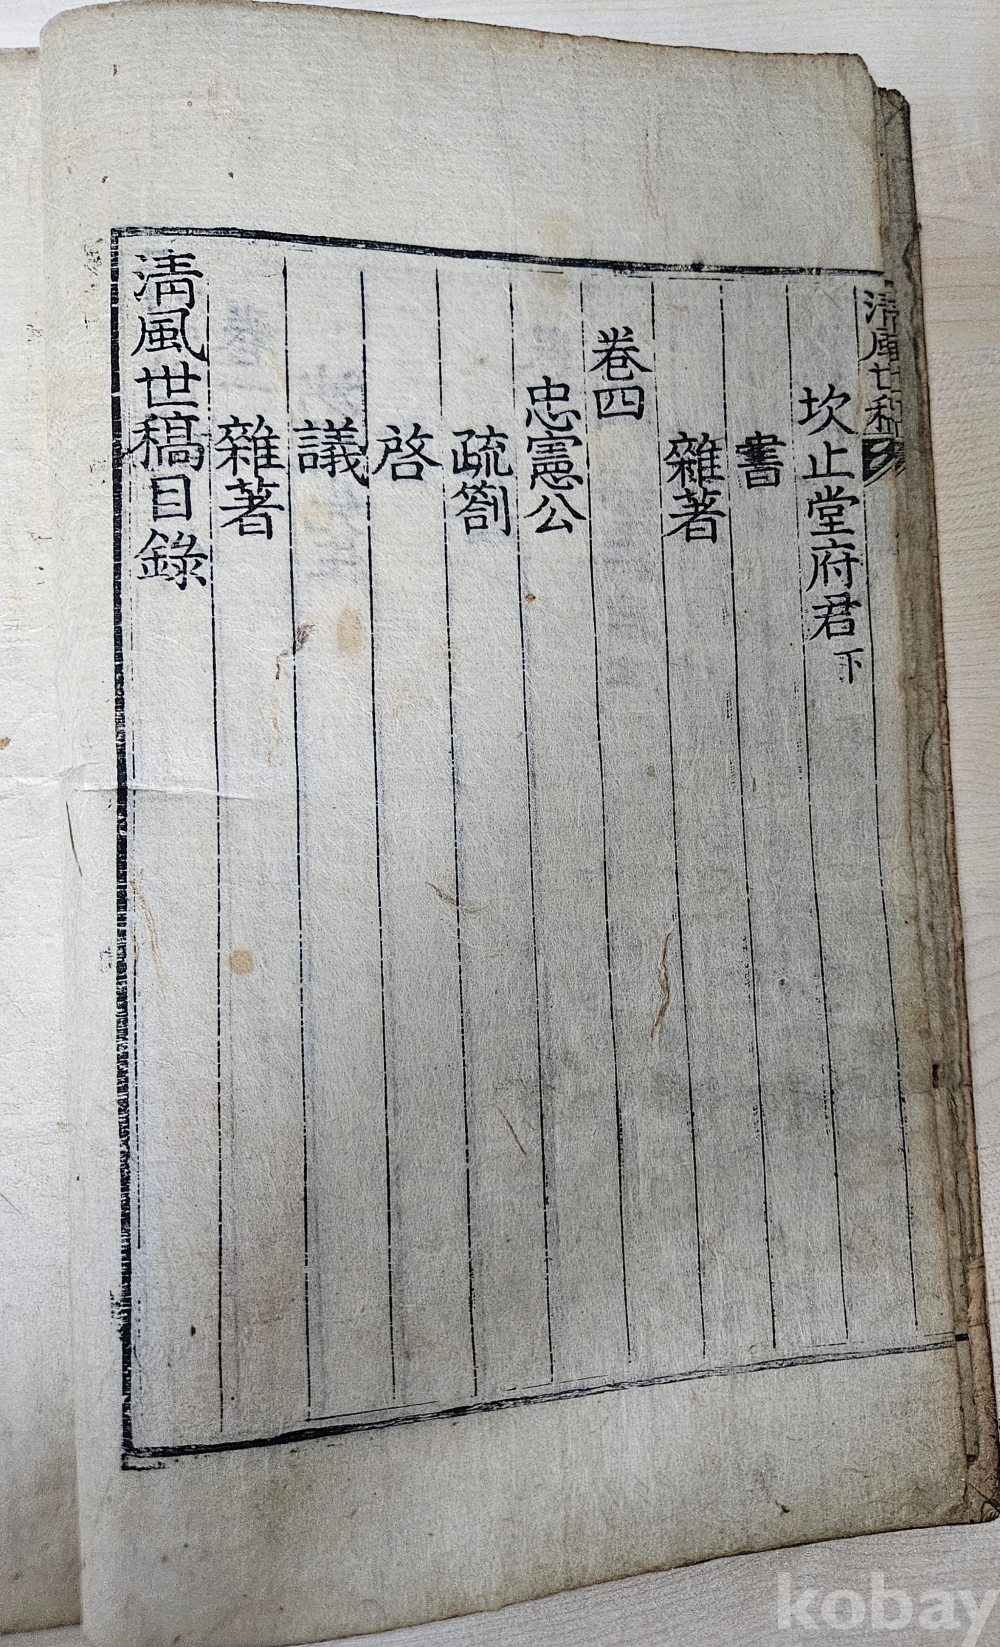 清風世稿
坎止堂府君下
書
雜著
卷四
忠憲公
疏劄
啓
議
雜著
淸風世稿目錄
kobay